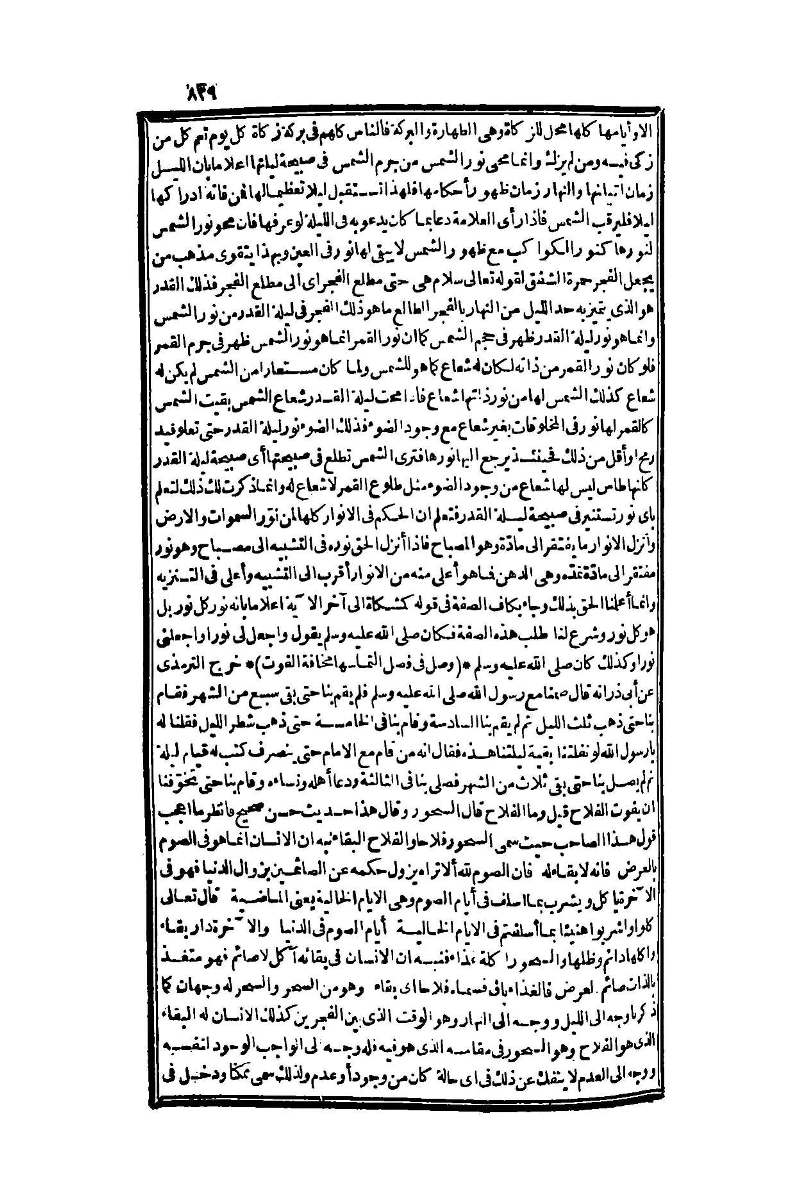 ٨٢٩
الا وأيامها كلها محل للزكاة وهى الطهارة والبركة فالناس كلهم فى بركة زكاة كل يوم تعم كل من
زكى فيه ومن لم يزك وانما محى نور الشمس من جرم الشمس فى صبيحة ليلتها اعلاما بان الليل
زمان اتيانها والنهار زمان ظهور أحكامها فلهذا تستقبل ليلا تعظيما لها فمن فاته ادراكها
ليلا فليرقب الشمس فاذا رأى العلامة دعا بما كان يدعو به فى الليلة لو عرفها فان محو نور الشمس
لنورها كنور الكواكب مع ظهور الشمس لا يبقى لها نور فى العين وبهذا يتقوى مذهب من
يجعل الفجر حمرة الشفق لقوله تعالى سلام هى حتى مطلع الفجر اى الى مطلع الفجر فذلك القدر
هو الذى يتميز به حد الليل من النهار بالفجر الطالع ما هو ذلك الفجر فى ليلة القدر من نور الشمس
وانما هو نور ليلة القدر ظهر فى حجم الشمس كما ان نور القمر انما هو نور الشمس ظهر فى جرم القمر
فلو كان نور القمر من ذاته لكان له شعاع كما هو للشمس ولما كان مستعارا من الشمس لم يكن له
شعاع كذلك الشمس لها من نور ذاتها شعاع فاذا محت ليلة القدر شعاع الشمس بقيت الشمس
كالقمر لها نور فى المخلوقات بغير شعاع مع وجود الضوء فذلك الضوء نور ليلة القدر حتى تعلو قيد
رمح او أقل من ذلك فحينئذ يرجع اليها نورها فترى الشمس تطلع فى صبيحتها أى صبيحة ليلة القدر
كانها طاس ليس لها شعاع من وجود الضوء مثل طلوع القمر لا شعاع له وانما ذكرت لك ذلك لتعلم
باى نور تستنير فى صبيحة ليلة القدر فتعلم ان الحكم فى الانوار كلها لمن نور السموات والارض
وأنزل الانوار ما يفتقر الى مادة وهو المصباح فاذا أنزل الحق نوره فى التشبيه الى مصباح وهو نور
مفتقر الى مادة تمده وهى الدهن فما هو أعلى منه من الانوار أقرب الى التشبيه وأعلى فى التنزيه
وانما أعلنا الحق بذلك وجاء بكاف الصفة فى قوله كمشكاة الى آخر الآية اعلاما بانه نور كل نور بل
هو كل نور وشرع لنا طلب هذه الصفة فكان صلى الله عليه وسلم يقول واجعل لى نورا واجعلنى
نورا وكذلك كان صلى الله عليه وسلم *(وصل فى فصل التماسها مخافة الفوت)* خرج الترمذى
عن أبى ذر انه قال صمنا مع رسول الله صلى الله عليه وسلم فلم يقم بنا حتى بقى سبع من الشهر فقام
بنا حتى ذهب ثلث الليل ثم لم يقم بنا السادسة وقام بنا فى الخامسة حتى ذهب شطر الليل فقلنا له
يا رسول الله لو نفلتنا بقية ليلتنا هذه فقال انه من قام مع الامام حتى ينصرف كتب له قيام ليلة
ثم لم يصل بنا حتى بقى ثلاث من الشهر فصلى بنا فى الثالثة ودعا أهله ونساءه وقام بنا حتى تخوفنا
ان يفوت الفلاح قيل وما الفلاح قال السحور وقال هذا حديث حسن صحيح فانظر ما اعجب
قول هذا الصاحب حيث سمى السحور فلاحا والفلاح البقاء نبه ان الانسان انما هو فى الصوم
بالعرض فانه لا بقاء له فان الصوم لله ألا تراه يزول حكمه عن الصائمين بزوال الدنيا فهو فى
الآخرة يأكل ويشرب بما اسلف فى أيام الصوم وهى الايام الخالية يعنى الماضية قال تعالى
كلوا واشربوا هنيئا بما أسلفتم فى الايام الخالية أيام الصوم فى الدنيا والآخرة دار بقاء
واكلها دائم وظلها والسحور اكلة غذاء فنبه ان الانسان فى بقائه آكل لا صائم فهو متغذ
بالذات صائم بالعرض فالغذاء باق فسماه فلاحا اى بقاء وهو من السحر والسحر له وجهان كما
ذكرنا وجه الى الليل ووجه الى النهار وهو الوقت الذى بين الفجرين كذلك الانسان له البقاء
الذى هو الفلاح وهو السحور فى مقامه الذى هو فيه فله وجه الى الواجب الوجود لنفسه
ووجه الى العدم لا ينفك عن ذلك فى اى حالة كان من وجود أو عدم ولذلك سمى ممكنا ودخل فى